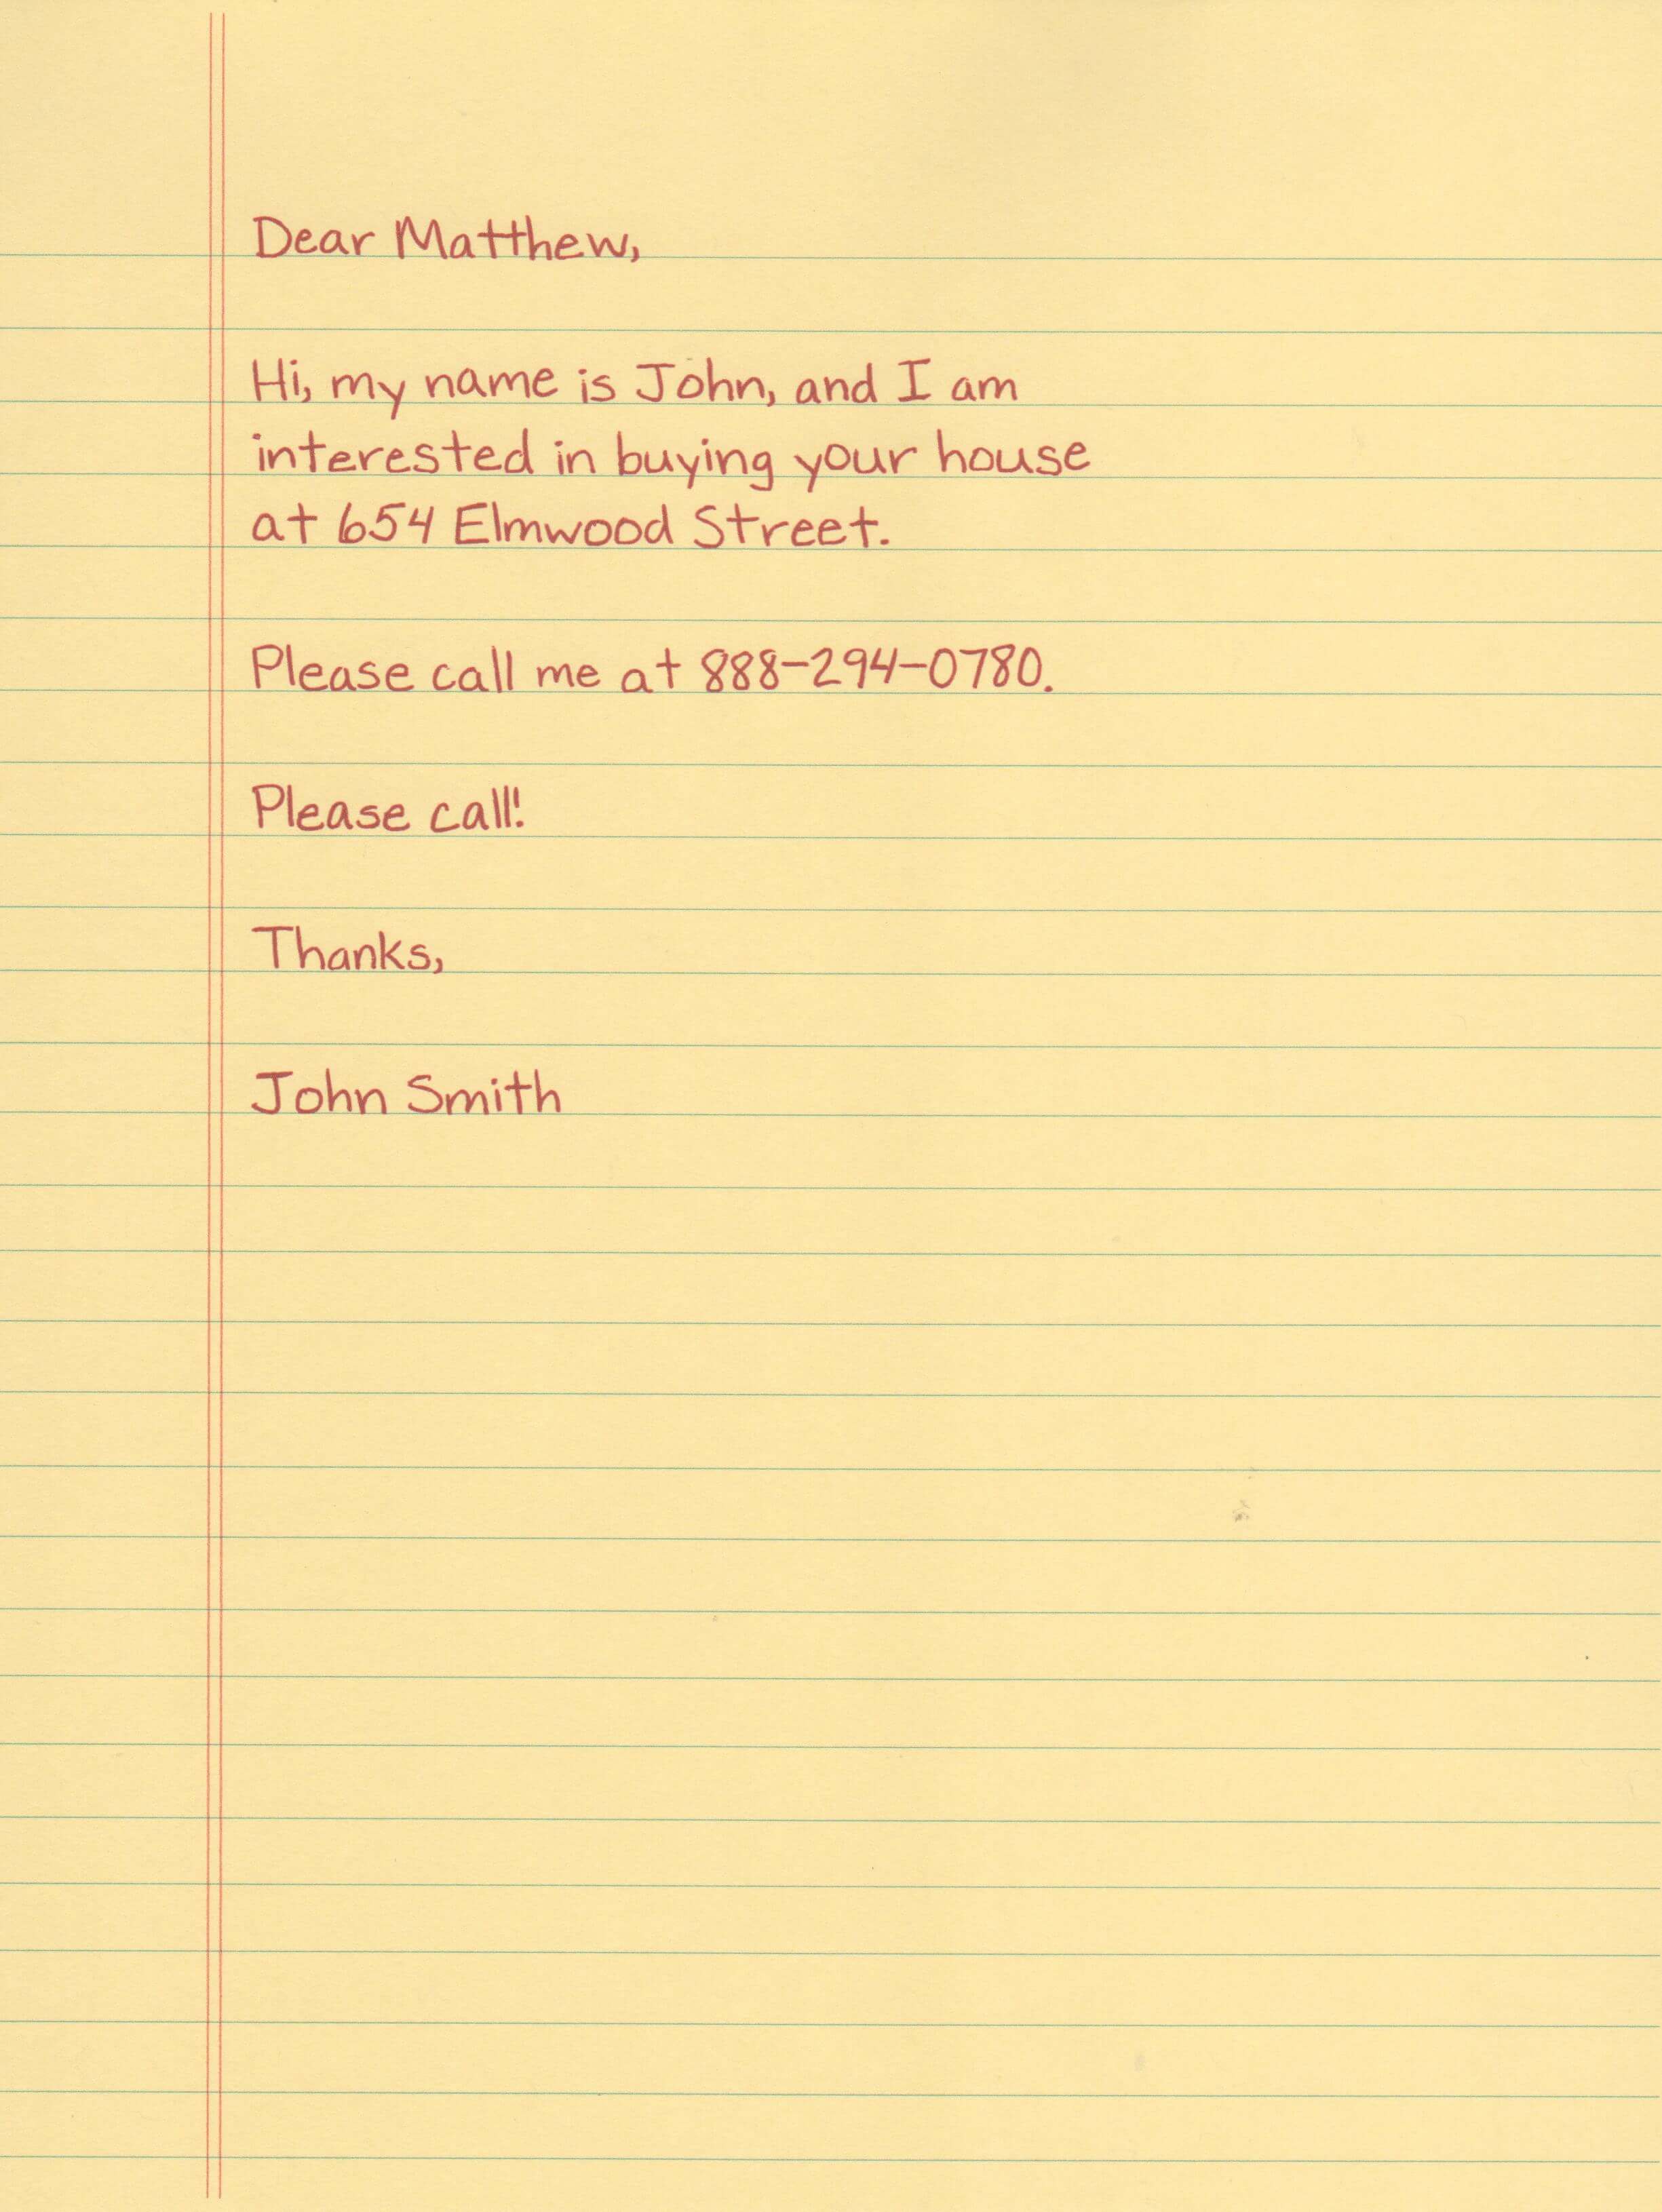 Dear Matthew,
Hi, my name is John, and I am
interested in buying your house
at 654 Elmwood Street.
Please call me at 888-294-0780.
Please call!
Thanks,
John Smith